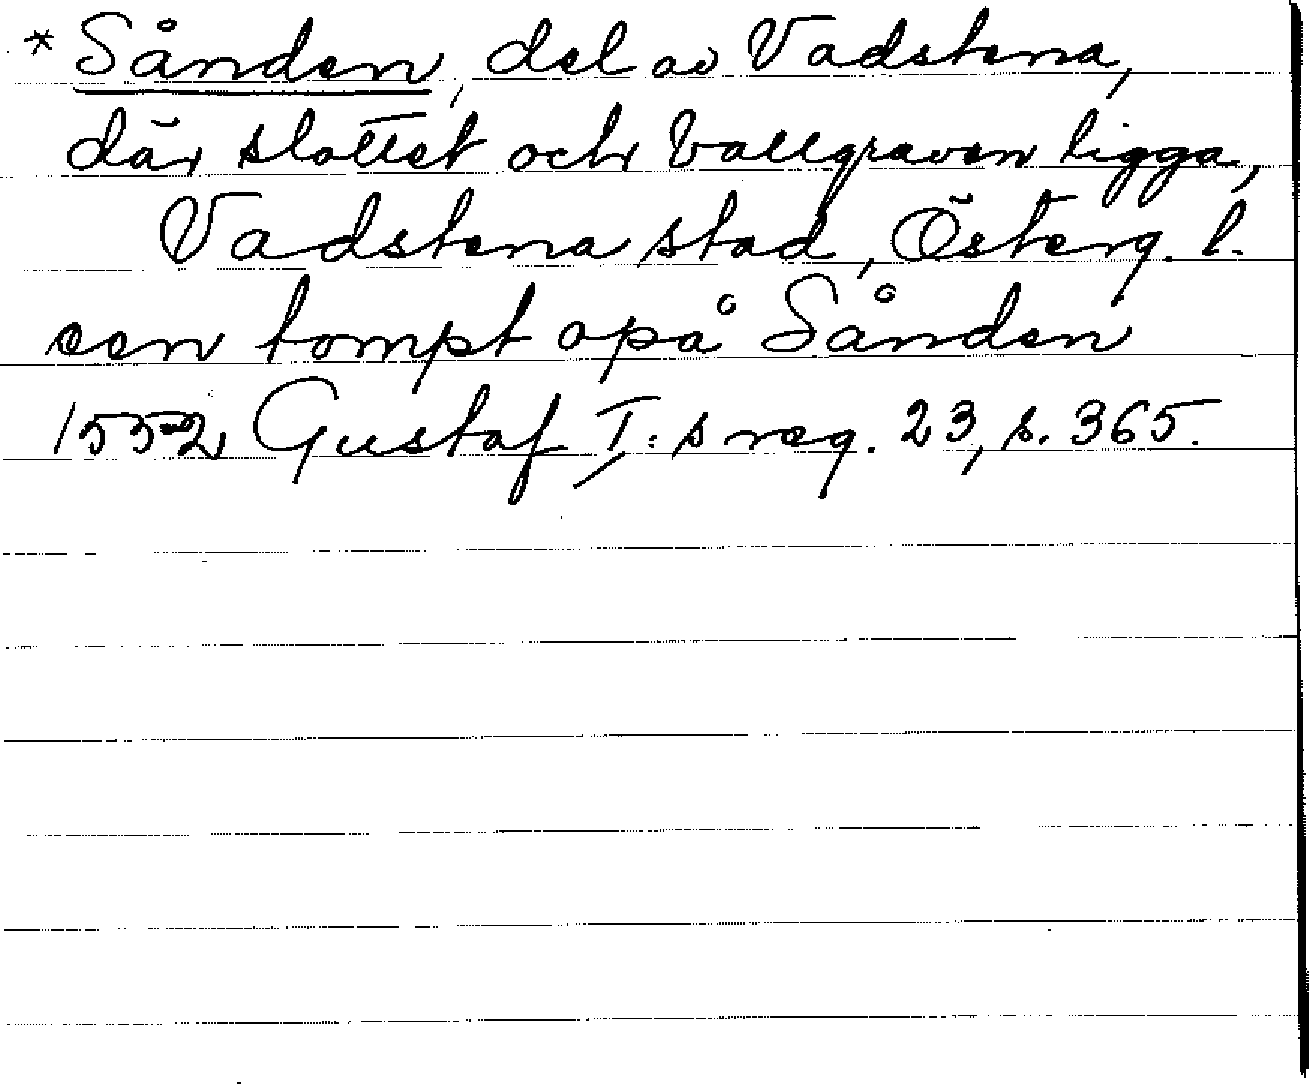 * Sånden, del av Vadstena,
där slottet och vallgraven ligga,
Vadstena stad, Österg. l.
een tompt opå Sånden
1552 Gustaf I:s reg. 23, s. 365.